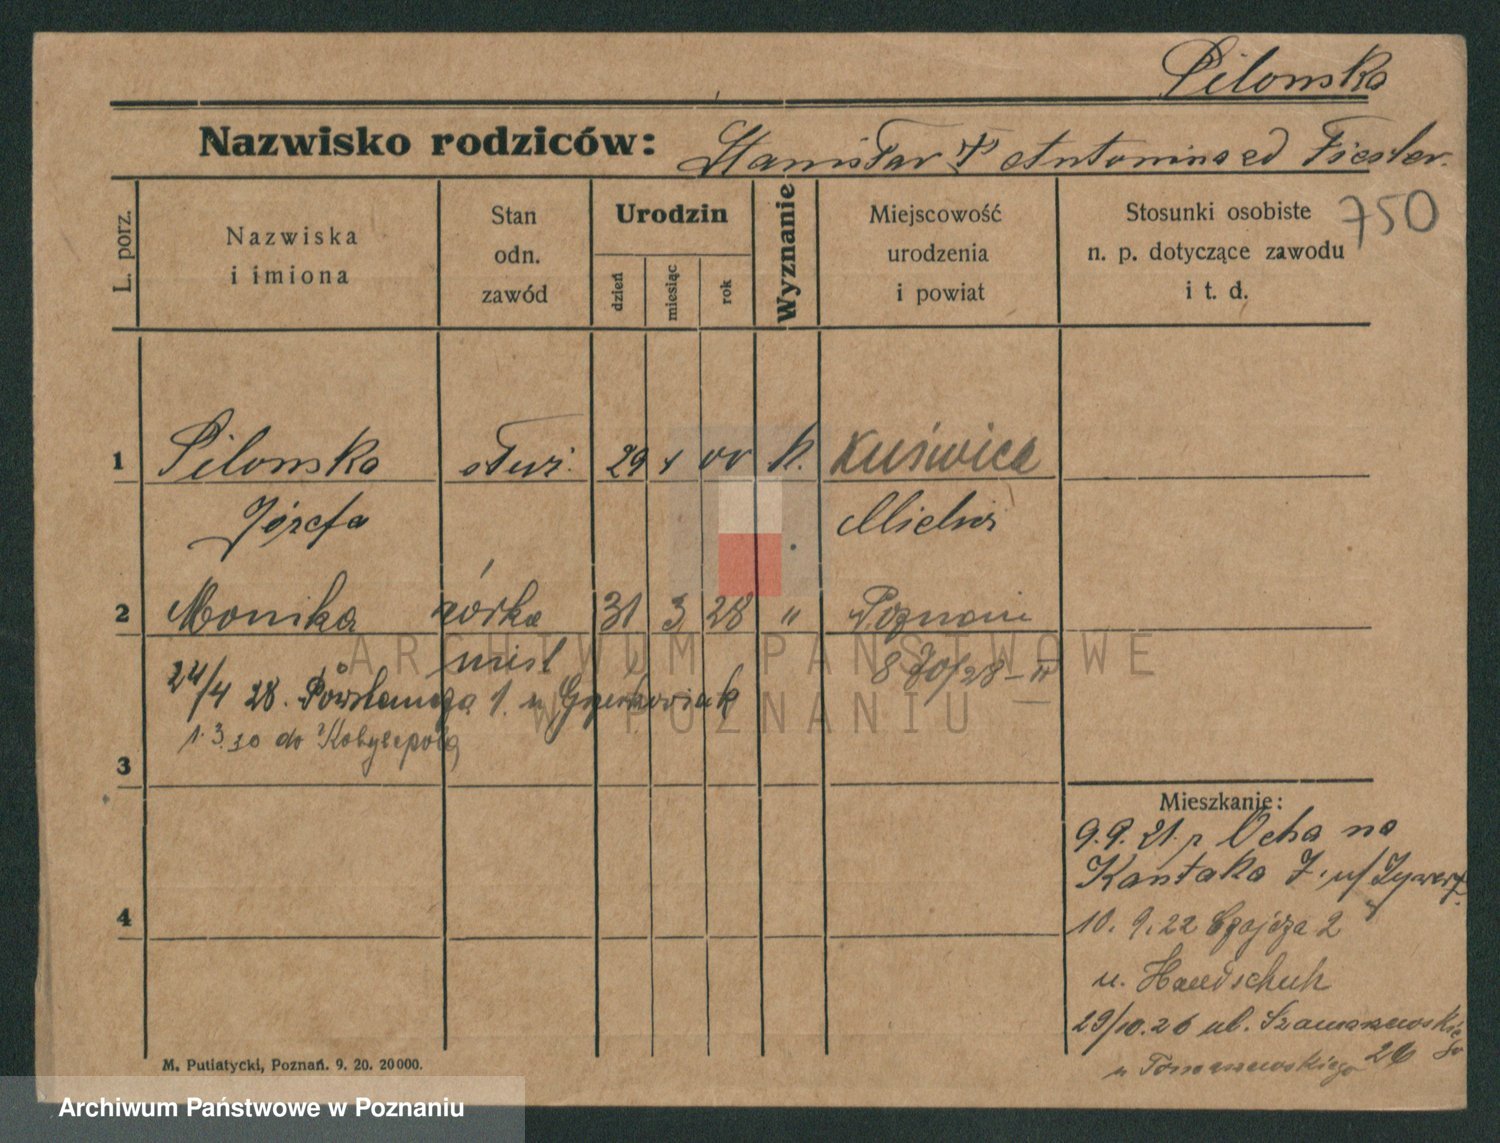 Pilonska
Nazwisko rodziców: Stanisław i Antonina od Fiesler.
L. porz.
Nazwiska
i imiona
Stan
odn.
zawód
Urodzin
dzień
miesiąc
rok
Wyznanie
Miejscowość
urodzenia
i powiat
Stosunki osobiste
n. p. dotyczące zawodu
i t. d.
750
1 Pilonska służ. 29 1 00 k.
Józefa
2 Monika córka 31 3 28 " Poznań
24/4 28. 1. u
1.3.30 do Kobylepola
3
Mieszkanie:
9.9.21. na
Kantaka 7.
4
10.9.22 2
u. Handschuh
29/10.26 ul. Szamarzewskiego 26
u Tomaszewskiego
M. Putiatycki, Poznań. 9. 20. 20000.
ARCHIWUM PAŃSTWOWE
W POZNANIU
Archiwum Państwowe w Poznaniu